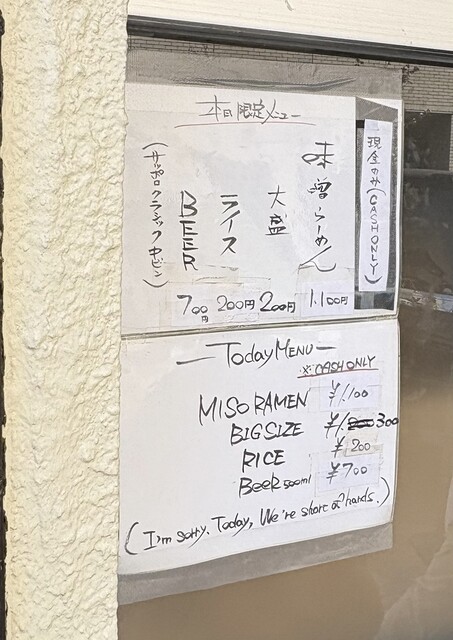 本日限定メニュー
現金のみ(CASH ONLY)
味噌らーめん 1.100円
大盛 200円
ライス 200円
BEER 700円
(サッポロクラシック中ビン)
TODAY MENU
※CASH ONLY
MISO RAMEN ¥1,100
BIG SIZE ¥1,300
RICE ¥200
Beer 500ml ¥700
(I'm sorry. Today, We're short of hands.)